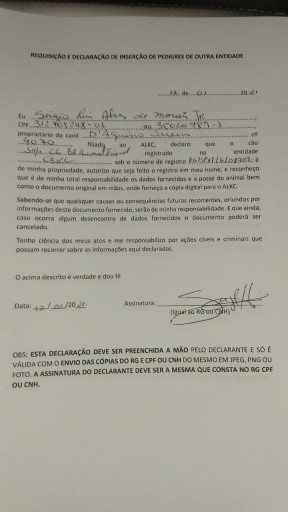 REQUISIÇÃO E DECLARAÇÃO DE INSERÇÃO DE PEDIGREE DE OUTRA ENTIDADE
12, de 01 20 21
Eu Sergio Luis Alves de Morais Jr
CPF RG
proprietário do canil D'Aquino nº
4070 filiado ao ALKC, declaro que o cão
registrado na entidade
CBKC sob o número de registro é
de minha propriedade, autorizo que seja feito o registro em meu nome, e reconheço
que é de minha total responsabilidade os dados fornecidos e a posse do animal bem
como o documento original em mãos, onde forneço a cópia digital para o ALKC.
Sabendo-se que quaisquer causas ou consequências futuras recorrentes, oriundos por
informações deste documento fornecido, serão de minha responsabilidade. E que ainda,
caso ocorra algum desencontro de dados fornecidos o documento poderá ser
cancelado.
Tenho ciência dos meus atos e me responsabilizo por ações cíveis e criminais que
possam recorrer sobre as informações aqui declaradas.
O acima descrito é verdade e dou fé
Data: 12/01/2021 Assinatura:
(Igual ao RG ou CNH)
OBS: ESTA DECLARAÇÃO DEVE SER PREENCHIDA A MÃO PELO DECLARANTE E SÓ É
VÁLIDA COM O ENVIO DAS CÓPIAS DO RG E CPF OU CNH DO MESMO EM JPEG, PNG OU
FOTO. A ASSINATURA DO DECLARANTE DEVE SER A MESMA QUE CONSTA NO RG CPF
OU CNH.